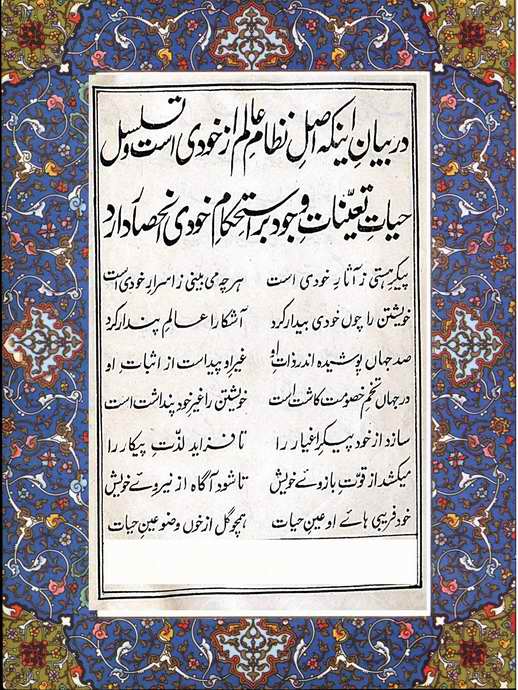 در بیانِ اینکہ اصلِ نظامِ عالم از خودی است و تسلسل
حیاتِ تعیّناتِ وجود بر استحکامِ خودی انحصار دارد
پیکرِ ہستی ز آثارِ خودی است ہرچہ می بینی ز اسرارِ خودی است
خویشتن را چوں خودی بیدار کرد آشکارا عالمِ پندار کرد
صد جہاں پوشیدہ اندر ذاتِ او غیرِ او پیداست از اثباتِ او
در جہاں تخمِ خصومت کاشت است خویشتن را غیرِ خود پنداشت است
سازد از خود پیکرِ اغیار را تا فزاید لذّتِ پیکار را
میکشد از قوّتِ بازوے خویش تا شود آگاہ از نیروے خویش
خود فریبی ہاے او عینِ حیات ہمچو گل از خوں وضو عینِ حیات